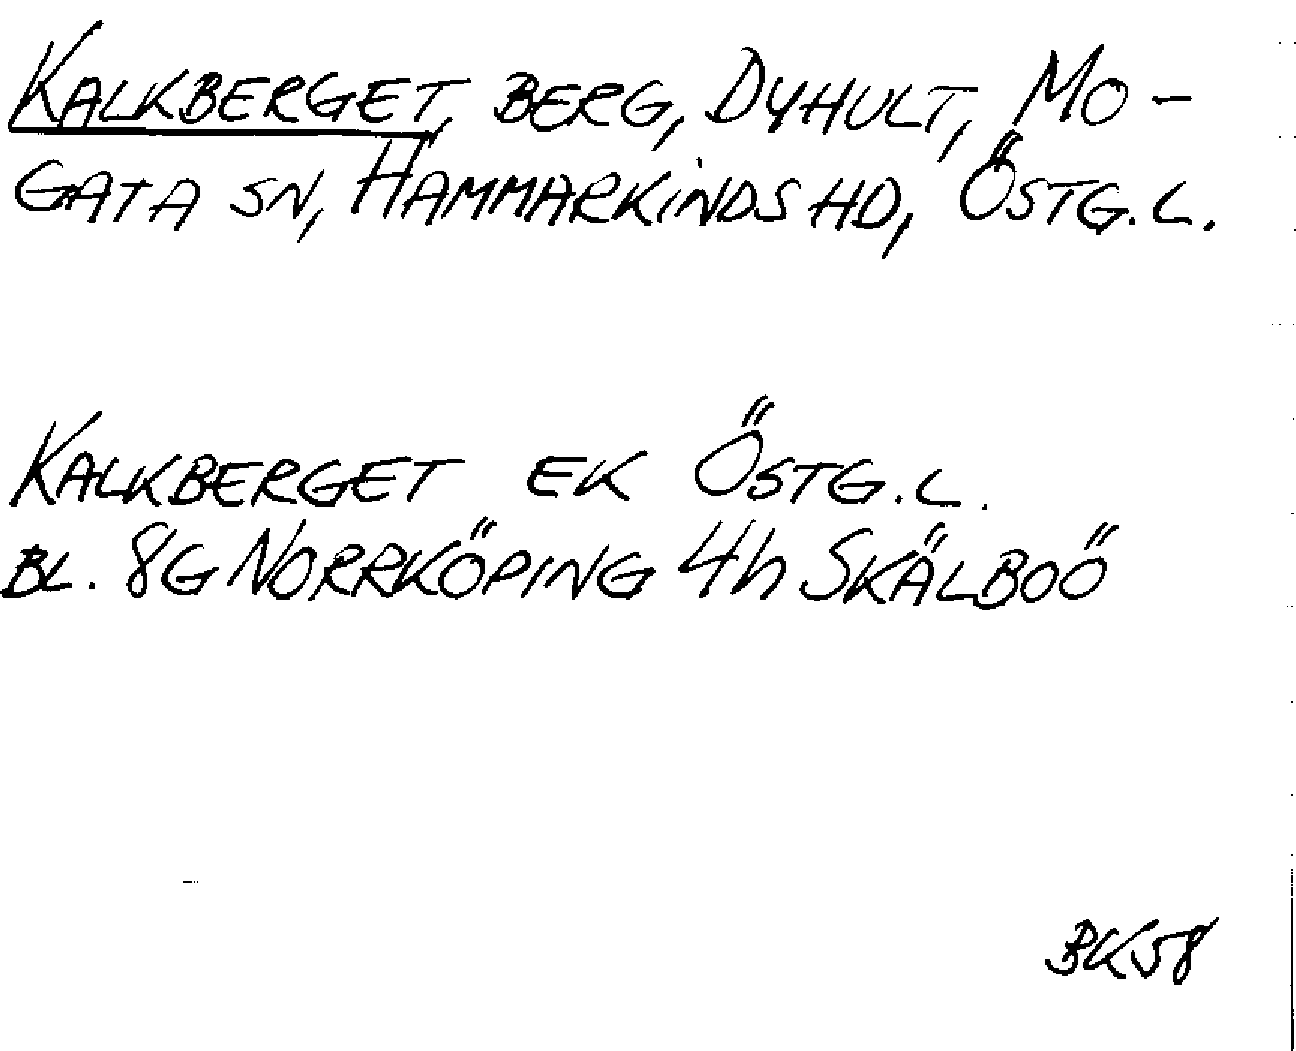 KALKBERGET, BERG, DYHULT, MO-
GATA SN, HAMMARKINDS HD, ÖSTG. L.
KALKBERGET EK ÖSTG. L.
BL. 8G NORRKÖPING 4h SKÄLBOÖ
BK58